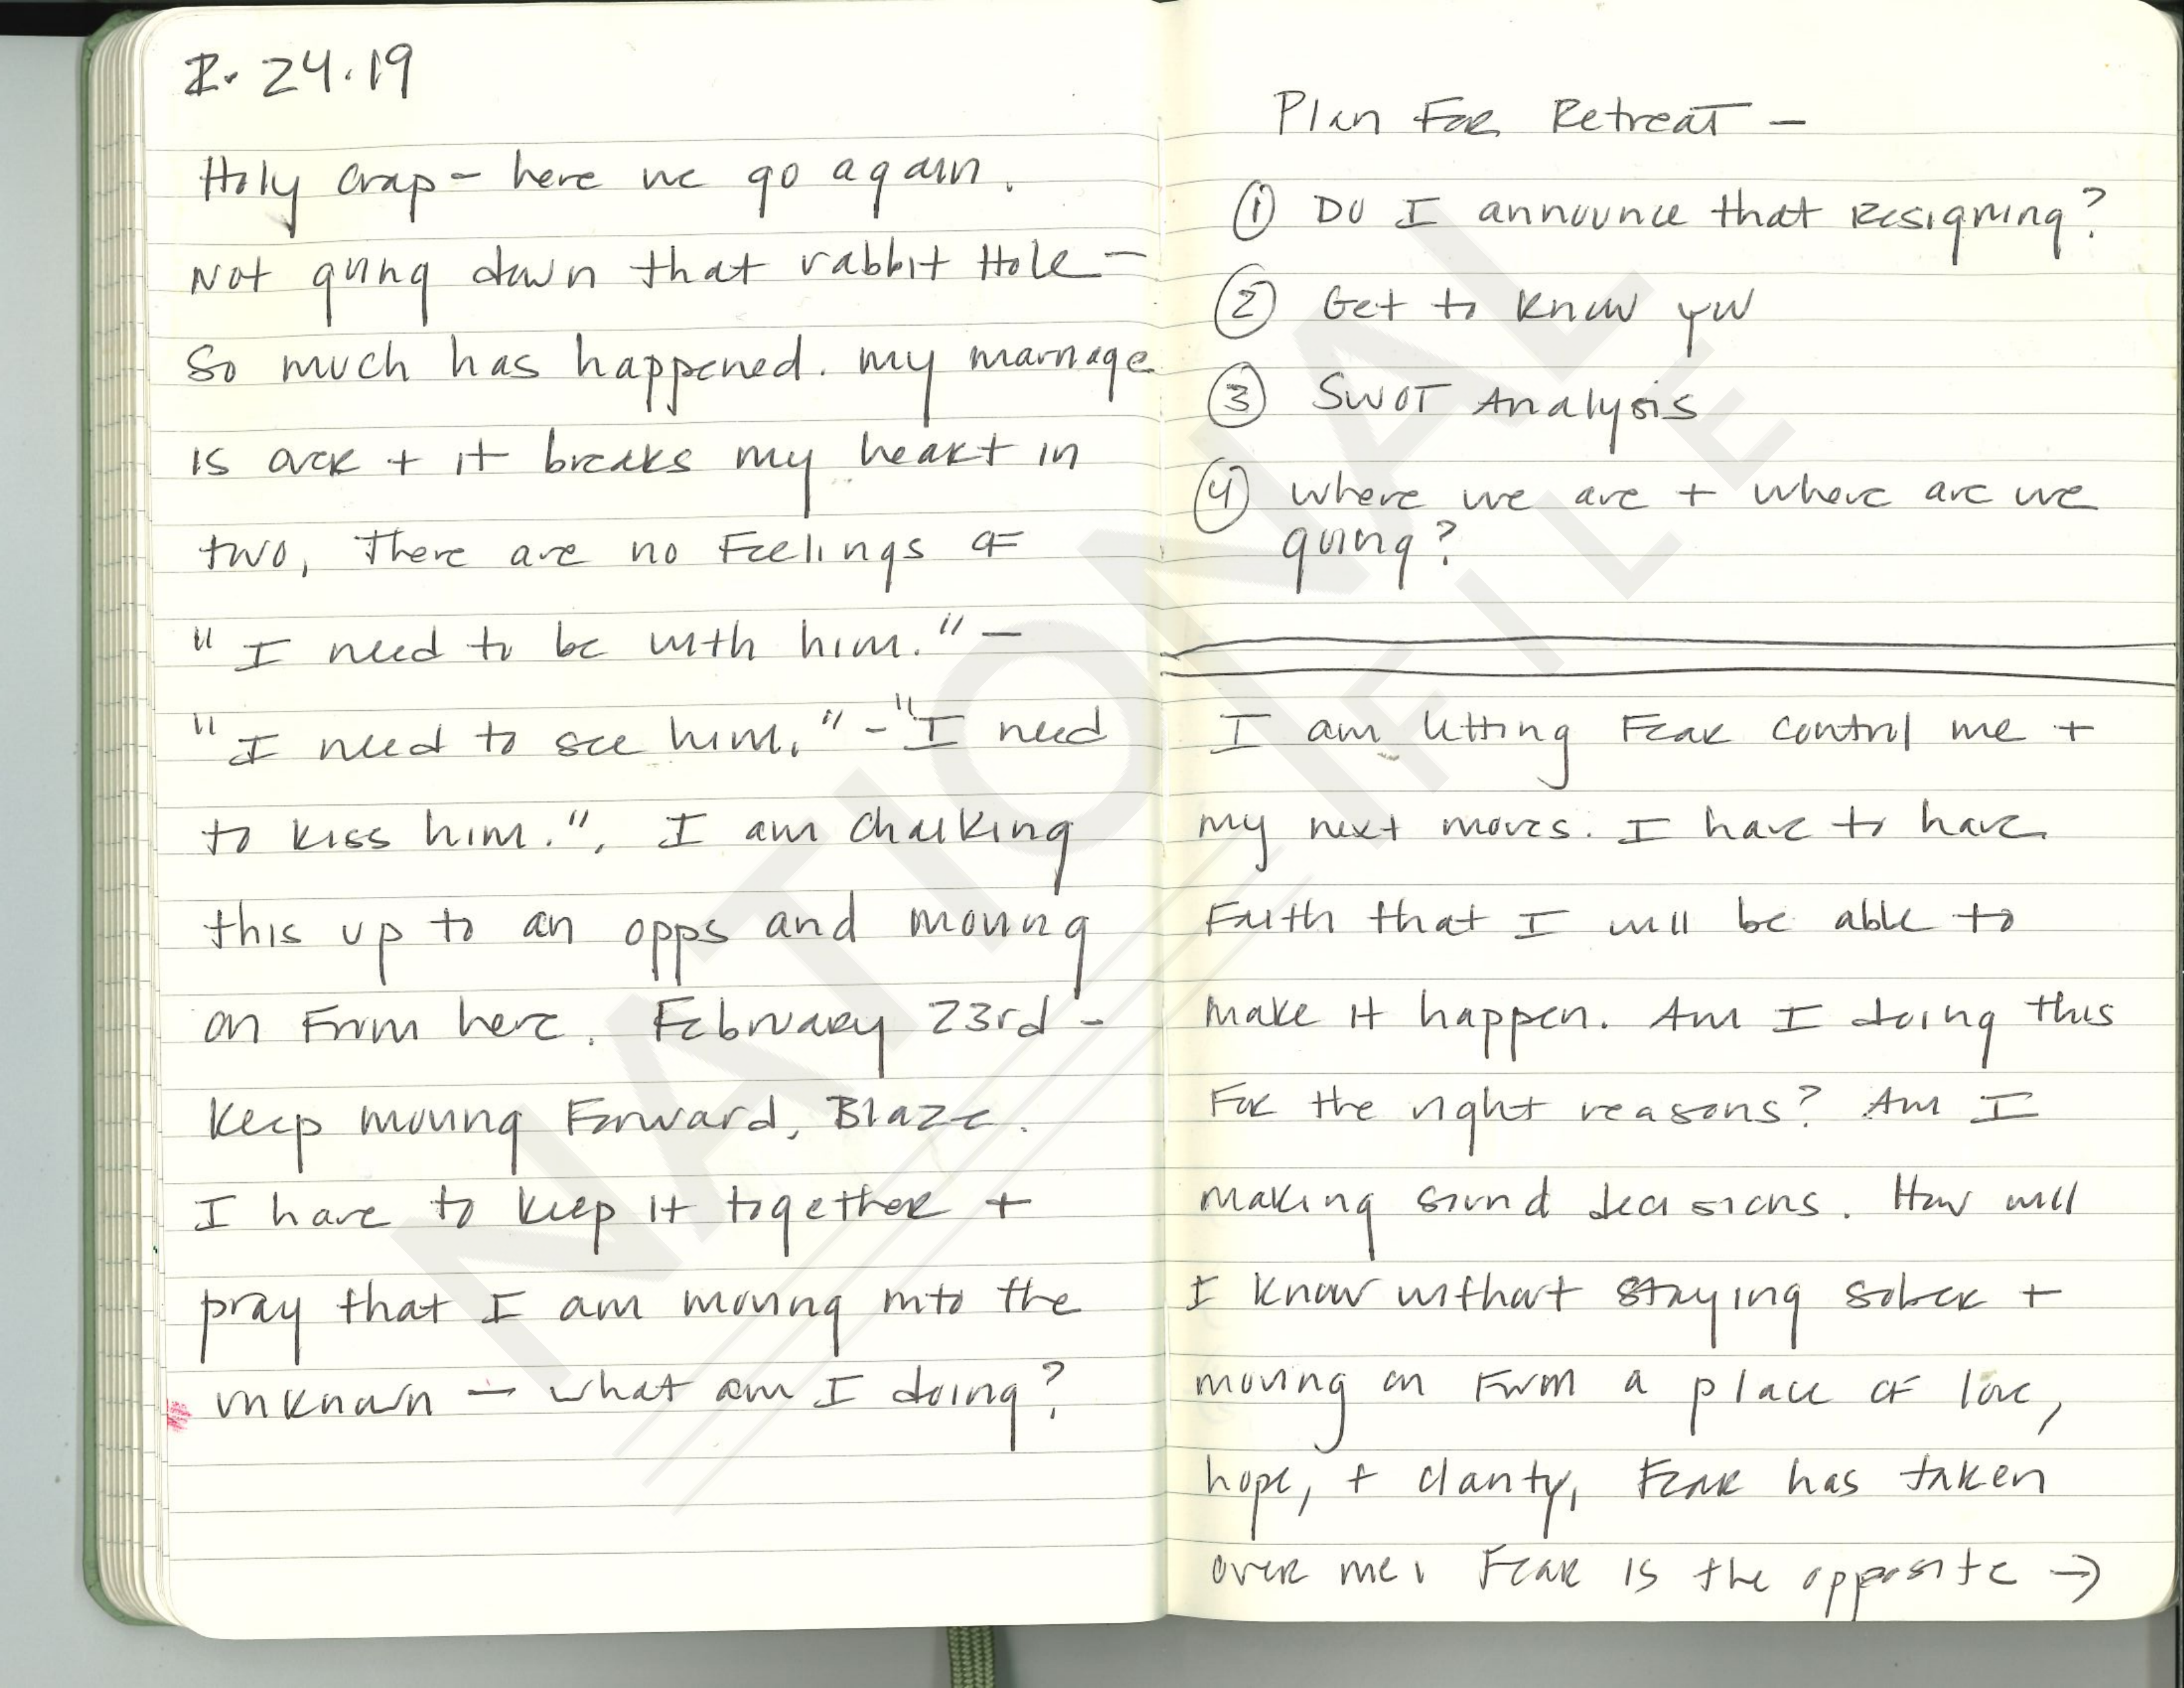 2. 24.19
Holy crap - here we go again.
Not going down that rabbit Hole -
So much has happened. my marriage
is over + it breaks my heart in
two, There are no Feelings of
"I need to be with him." -
"I need to see him." - "I need
to kiss him.". I am chalking
this up to an opps and moving
on From here. February 23rd -
Keep moving Forward, Blaze.
I have to keep it together +
pray that I am moving into the
unknown - what am I doing?
Plan For Retreat -
① Do I announce that resigning?
② Get to know you
③ SWOT Analysis
④ where we are + where are we
going?
I am letting Fear control me +
my next moves. I have to have
Faith that I will be able to
make it happen. Am I doing this
For the right reasons? Am I
making sound decisions. How will
I know without staying sober +
moving on From a place of love,
hope, + clarity, Fear has taken
over me. Fear is the opposite →
NATIONAL
FILE